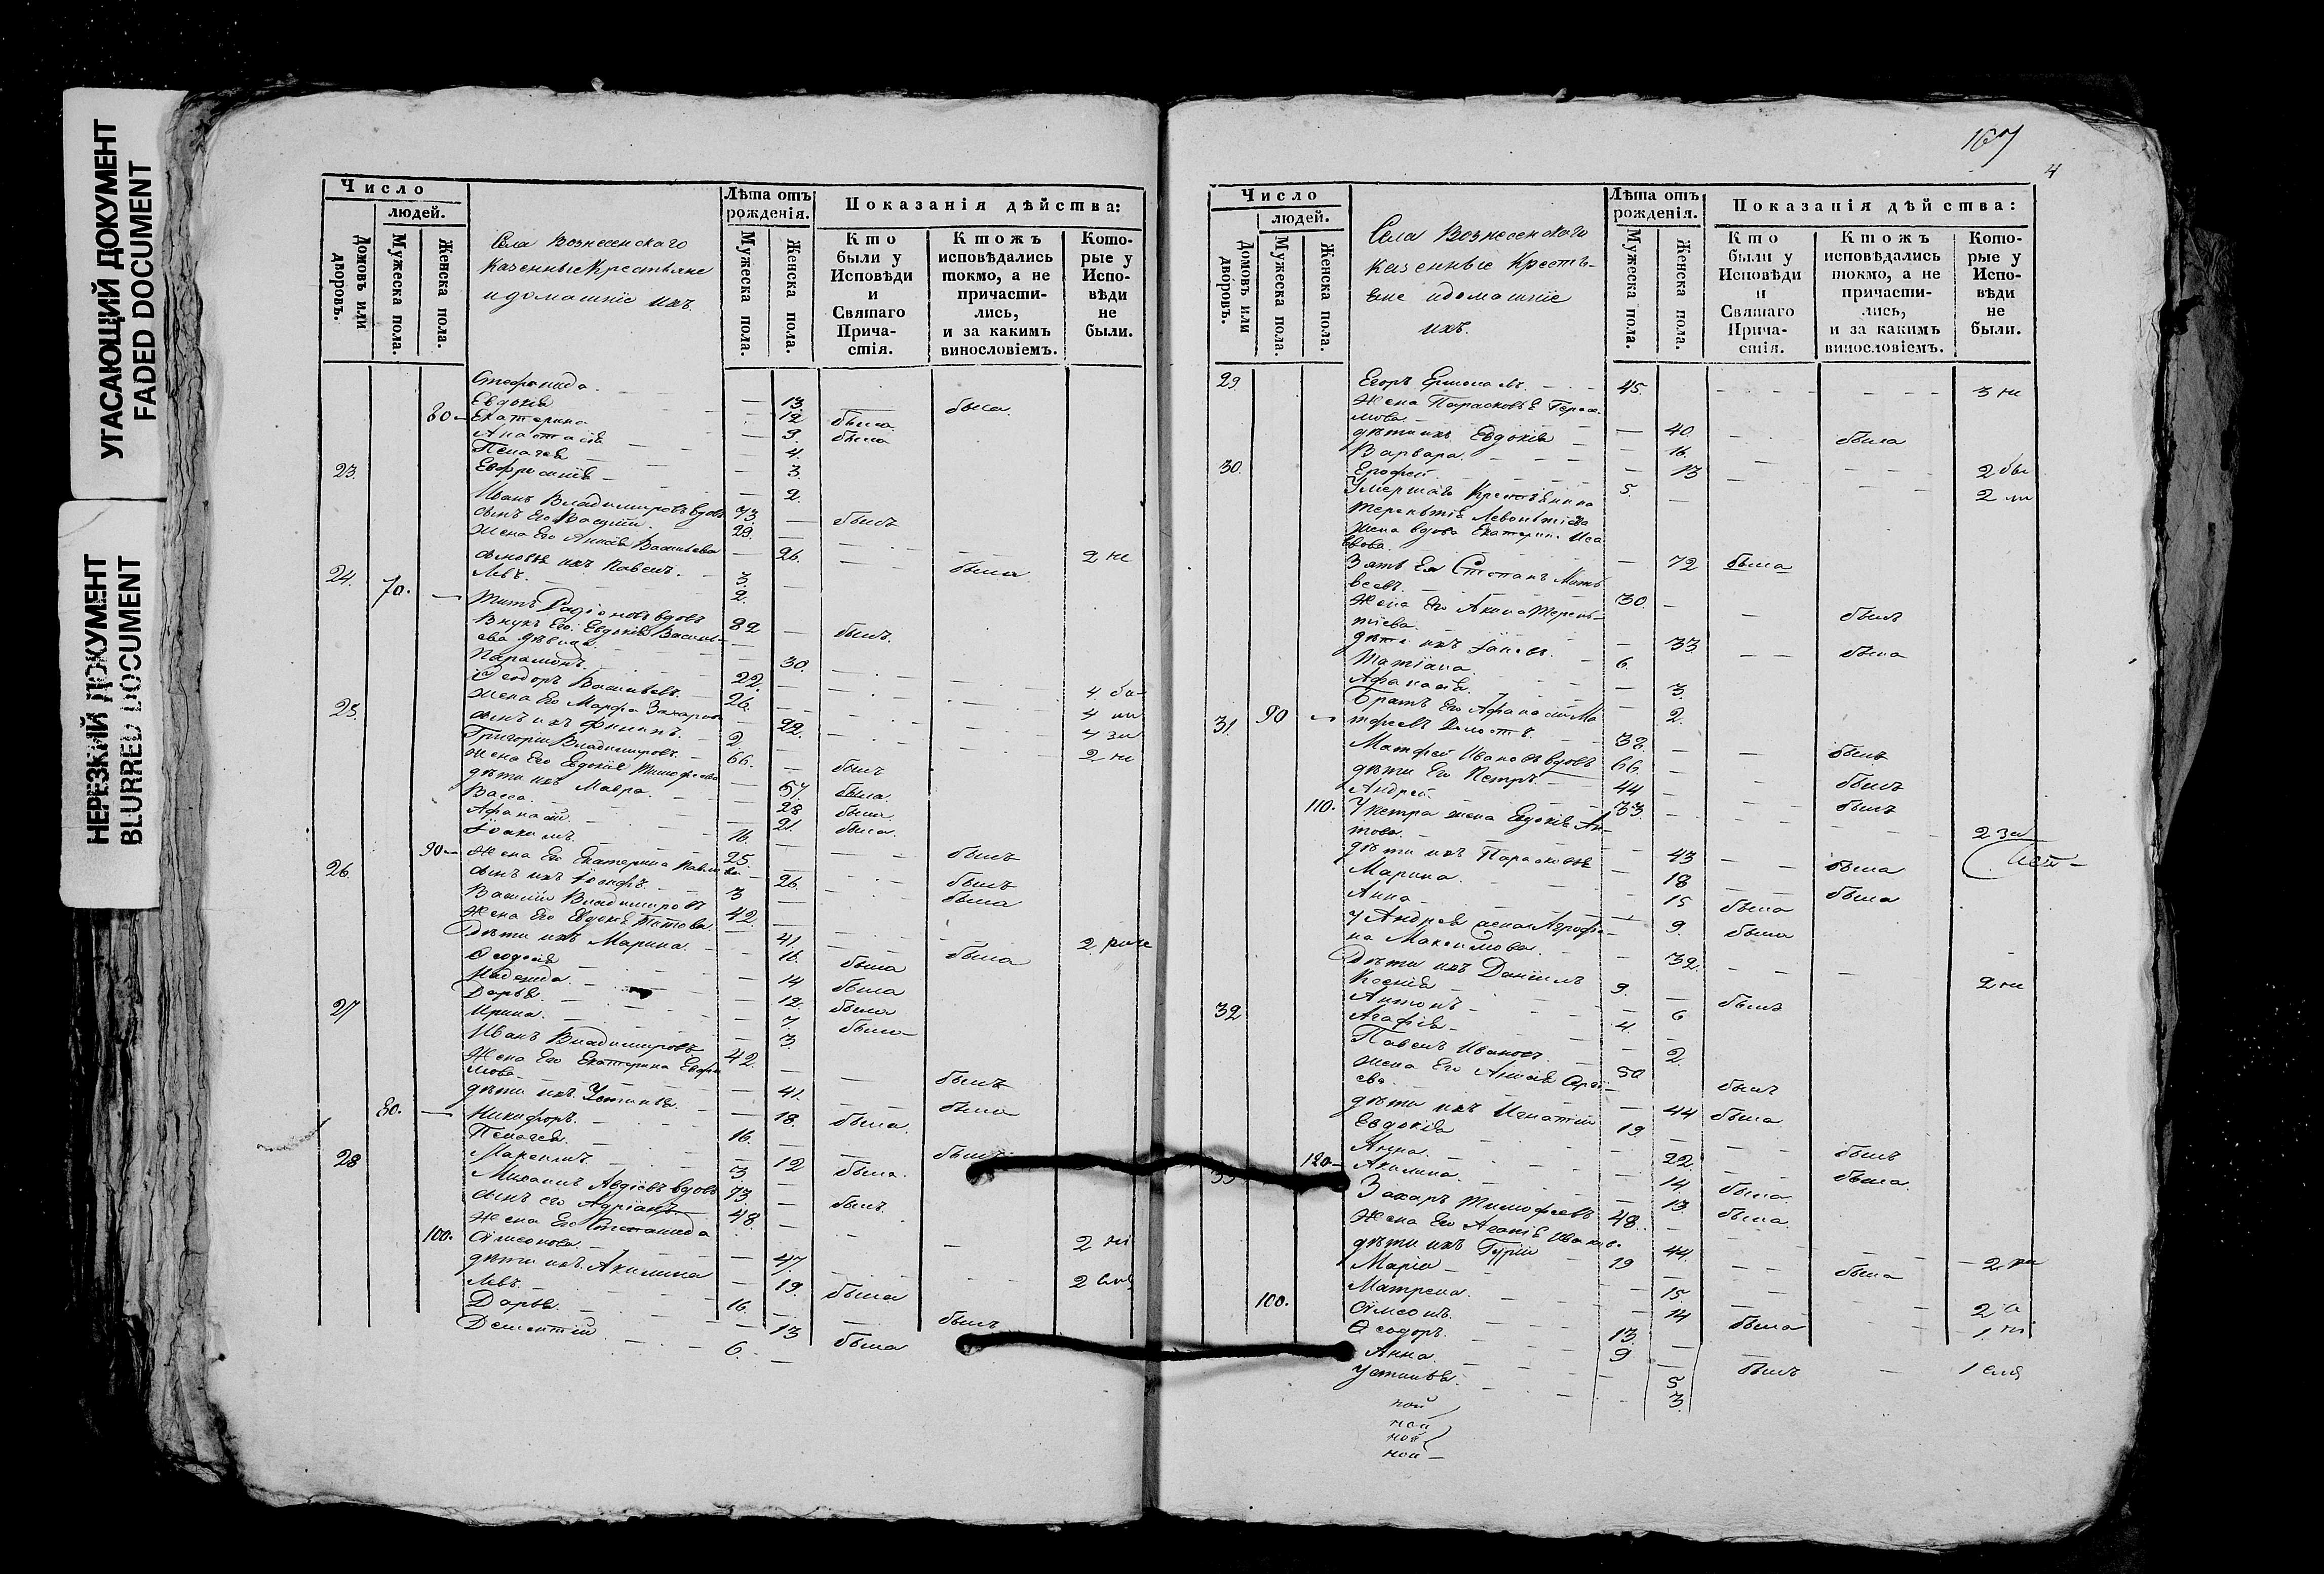 УГАСАЮЩИЙ ДОКУМЕНТ
FADED DOCUMENT
НЕРЕЗКИЙ ДОКУМЕНТ
BLURRED DOCUMENT
Число
людей.
Домовъ или дворовъ.
Мужеска пола.
Женска пола.
Села Вознесенскаго
казенные Крестьяне
и домашніе ихъ.
Лѣта отъ рожденія.
Мужеска пола.
Женска пола.
Показанія дѣйства:
Кто были у Исповѣди и Святаго Прича-стія.
Ктожъ исповѣдались токмо, а не причасти-лись, и за какимъ винословіемъ.
Кото-рые у Испо-вѣди не были.
Стефанида 13 была
Евдокія 12 была
60 Екатерина 9 была
Анастасія 4
Пелагея 3
23. Евфросинія 2
Иванъ Владимировъ вдовъ 73 былъ
сынъ его Василій 29 2 не
жена его Анисія Васильева 26 была
сыновья ихъ Павелъ 3
24. 70. Левъ 2
Титъ Радіоновъ вдовъ 82 былъ
Внукъ Его Евдокія Василь-
ева дѣвица 30
Парамонъ 22
Ѳеодоръ Васильевъ 26
жена Его Марфа Захарова 22
25. сынъ ихъ Филипъ 2
Григорій Владимировъ 66 былъ
жена Его Евдокія Тимофеева 57 была
дѣти ихъ Мавра 28 была
Васса 21 была
Афанасій 16 былъ
Іоакимъ 25 былъ
90 жена Его Екатерина Павлова 26 была
26. сынъ ихъ Іосифъ 3
Василій Владимировъ 42
жена Его Евдокія Титова 41 была
Дѣти ихъ Марина 16 была
Ѳеодосія 14 была
Надежда 12 была
Дарья 7 была
27 Ирина 3
Иванъ Владимировъ 42 былъ
жена Его Екатерина Евфи
мова 41 была
дѣти ихъ Устинья 18 была
80. Никифоръ 16 былъ
Пелагея 12 была
28 Маркелъ 3
Михаилъ Авдіевъ вдовъ 73 былъ
сынъ его Адріанъ 48 2 не
жена Его Степанида
100. Симеонова 47
дѣти ихъ Акилина 19 была
Левъ 16 былъ
Дарья 13 была
Дементій 6
167
4
Число
людей.
Домовъ или дворовъ.
Мужеска пола.
Женска пола.
Села Вознесенскаго
казенные Кресть-
яне и домашніе
ихъ.
Лѣта отъ рожденія.
Мужеска пола.
Женска пола.
Показанія дѣйства:
Кто были у Исповѣди и Святаго Прича-стія.
Ктожъ исповѣдались токмо, а не причасти-лись, и за какимъ винословіемъ.
Кото-рые у Испо-вѣди не были.
29. Егоръ Ермолаевъ 45 3 не
Жена Парасковья Гераси-
мова 40 была
дѣти ихъ Евдокія 16
Варвара 13
30. Ерофей 5
Умершаго Крестьянина
Терентія Левонтіева
жена вдова Екатерина Иса
акова 72 была
Зять Ея Степанъ Матѳ
веевъ 30 былъ
жена Его Акилина Терень-
тіева 33 была
дѣти ихъ 6
Татіана 3
Афанасія 2
90 Братъ Его Афанасій Ма
тфеевъ холостъ 32 былъ
31. Матфей Ивановъ вдовъ 66 былъ
дѣти Его Петръ 44 былъ
Андрей 33
110. У Петра жена Евдокія Ан
това 43 была
дѣти ихъ Парасковья 18 была
Марина 15 была
Анна 9 была
У Андрея жена Агрофе
на Максимова 32 2 не
Дѣти ихъ Даніилъ 9 былъ
Ксенія 6
Антонъ 4
32 Агафія 2
Павелъ Ивановъ 50 былъ
жена Его Анисія Сергѣ
ева 44 была
дѣти ихъ Игнатій 19 былъ
Евдокія 22 была
Анна 14 была
120 Акилина 13 была
33 Захаръ Тимофеевъ 48
жена Его Агапія Иванова 44 была
дѣти ихъ Гурій 19
Марія 15
Матрена 14 была
100. Симеонъ 13
Ѳеодоръ 9 былъ
Анна 5
Устинья 3
ной
ной
ной
ной